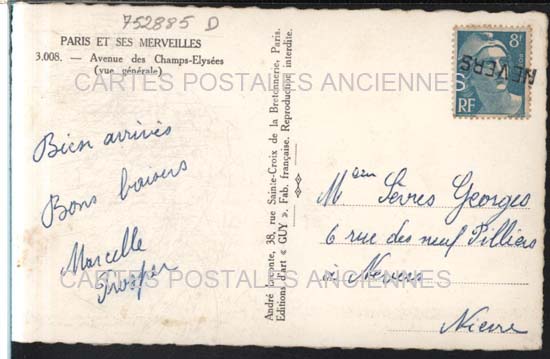 752885 D
PARIS ET SES MERVEILLES
3.008. — Avenue des Champs-Elysées
(vue générale)
CARTES POSTALES ANCIENNES
Bien arrivés
Bons baisers
Marcelle
Prosper
André Leconte, 38, rue Sainte-Croix de la Bretonnerie, Paris.
Editions d'art « GUY ». Fab. française. Reproduction interdite.
8F
RF
NEVERS
Sèvres Georges
6 rue des neuf Pilliers
à Nevers
Nièvre
CARTES POSTALES ANCIENNES